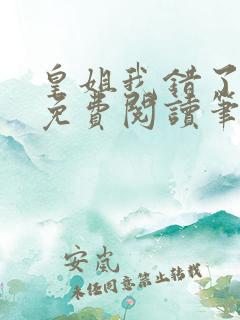 皇姐我错了
免費閱讀筆
安岚
未经同意禁止转载